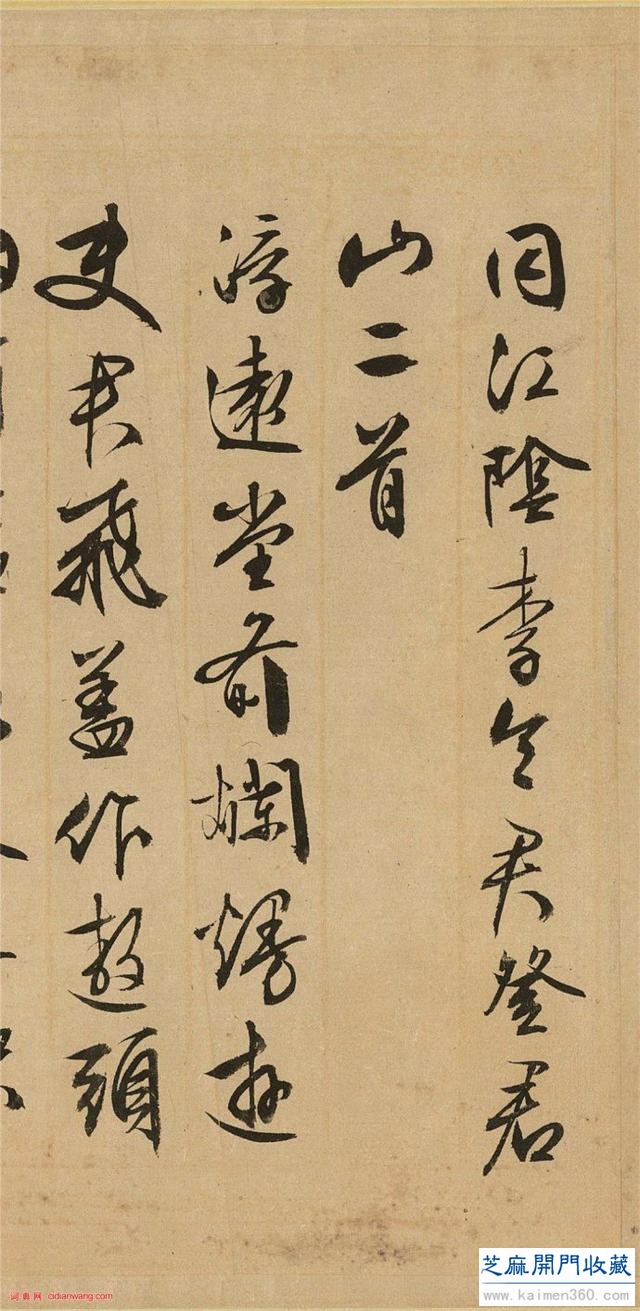 同江陰李令君登君
山二首
浮遠堂前爛熳遊
使君飛蓋作遨頭
芝麻開門收藏
www.kaimen360.com
词典网 cidianwang.com